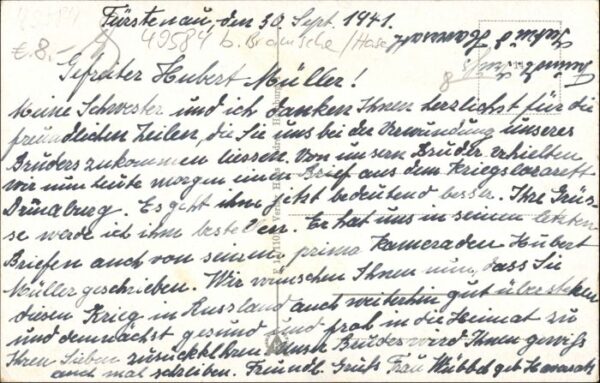 Fürstenau, den 30. Sept. 1941.
49584
€ 8.-
49584 b. Bramsche/Hase
8
Gefreiter Hubert Müller!
Meine Schwester und ich danken Ihnen herzlichst für die
freundlichen Zeilen, die Sie uns bei der Verwundung unseres
Bruders zukommen liessen. Von unserm Bruder erhielten
wir nun heute morgen einen Brief aus dem Kriegslazarett
Dünaburg. Es geht ihm jetzt bedeutend besser. Ihre Grüs-
se werde ich ihm bestellen. Er hat uns in seinen letzten
Briefen auch von seinem prima Kameraden Hubert
Müller geschrieben. Wir wünschen Ihnen nun, dass Sie
diesen Krieg in Russland auch weiterhin gut überstehen
und demnächst gesund und froh in die Heimat zu
Ihren Lieben zurückkehren. Unser Bruder wird Ihnen gewiss
auch mal schreiben. Freundl. Gruss Frau geb